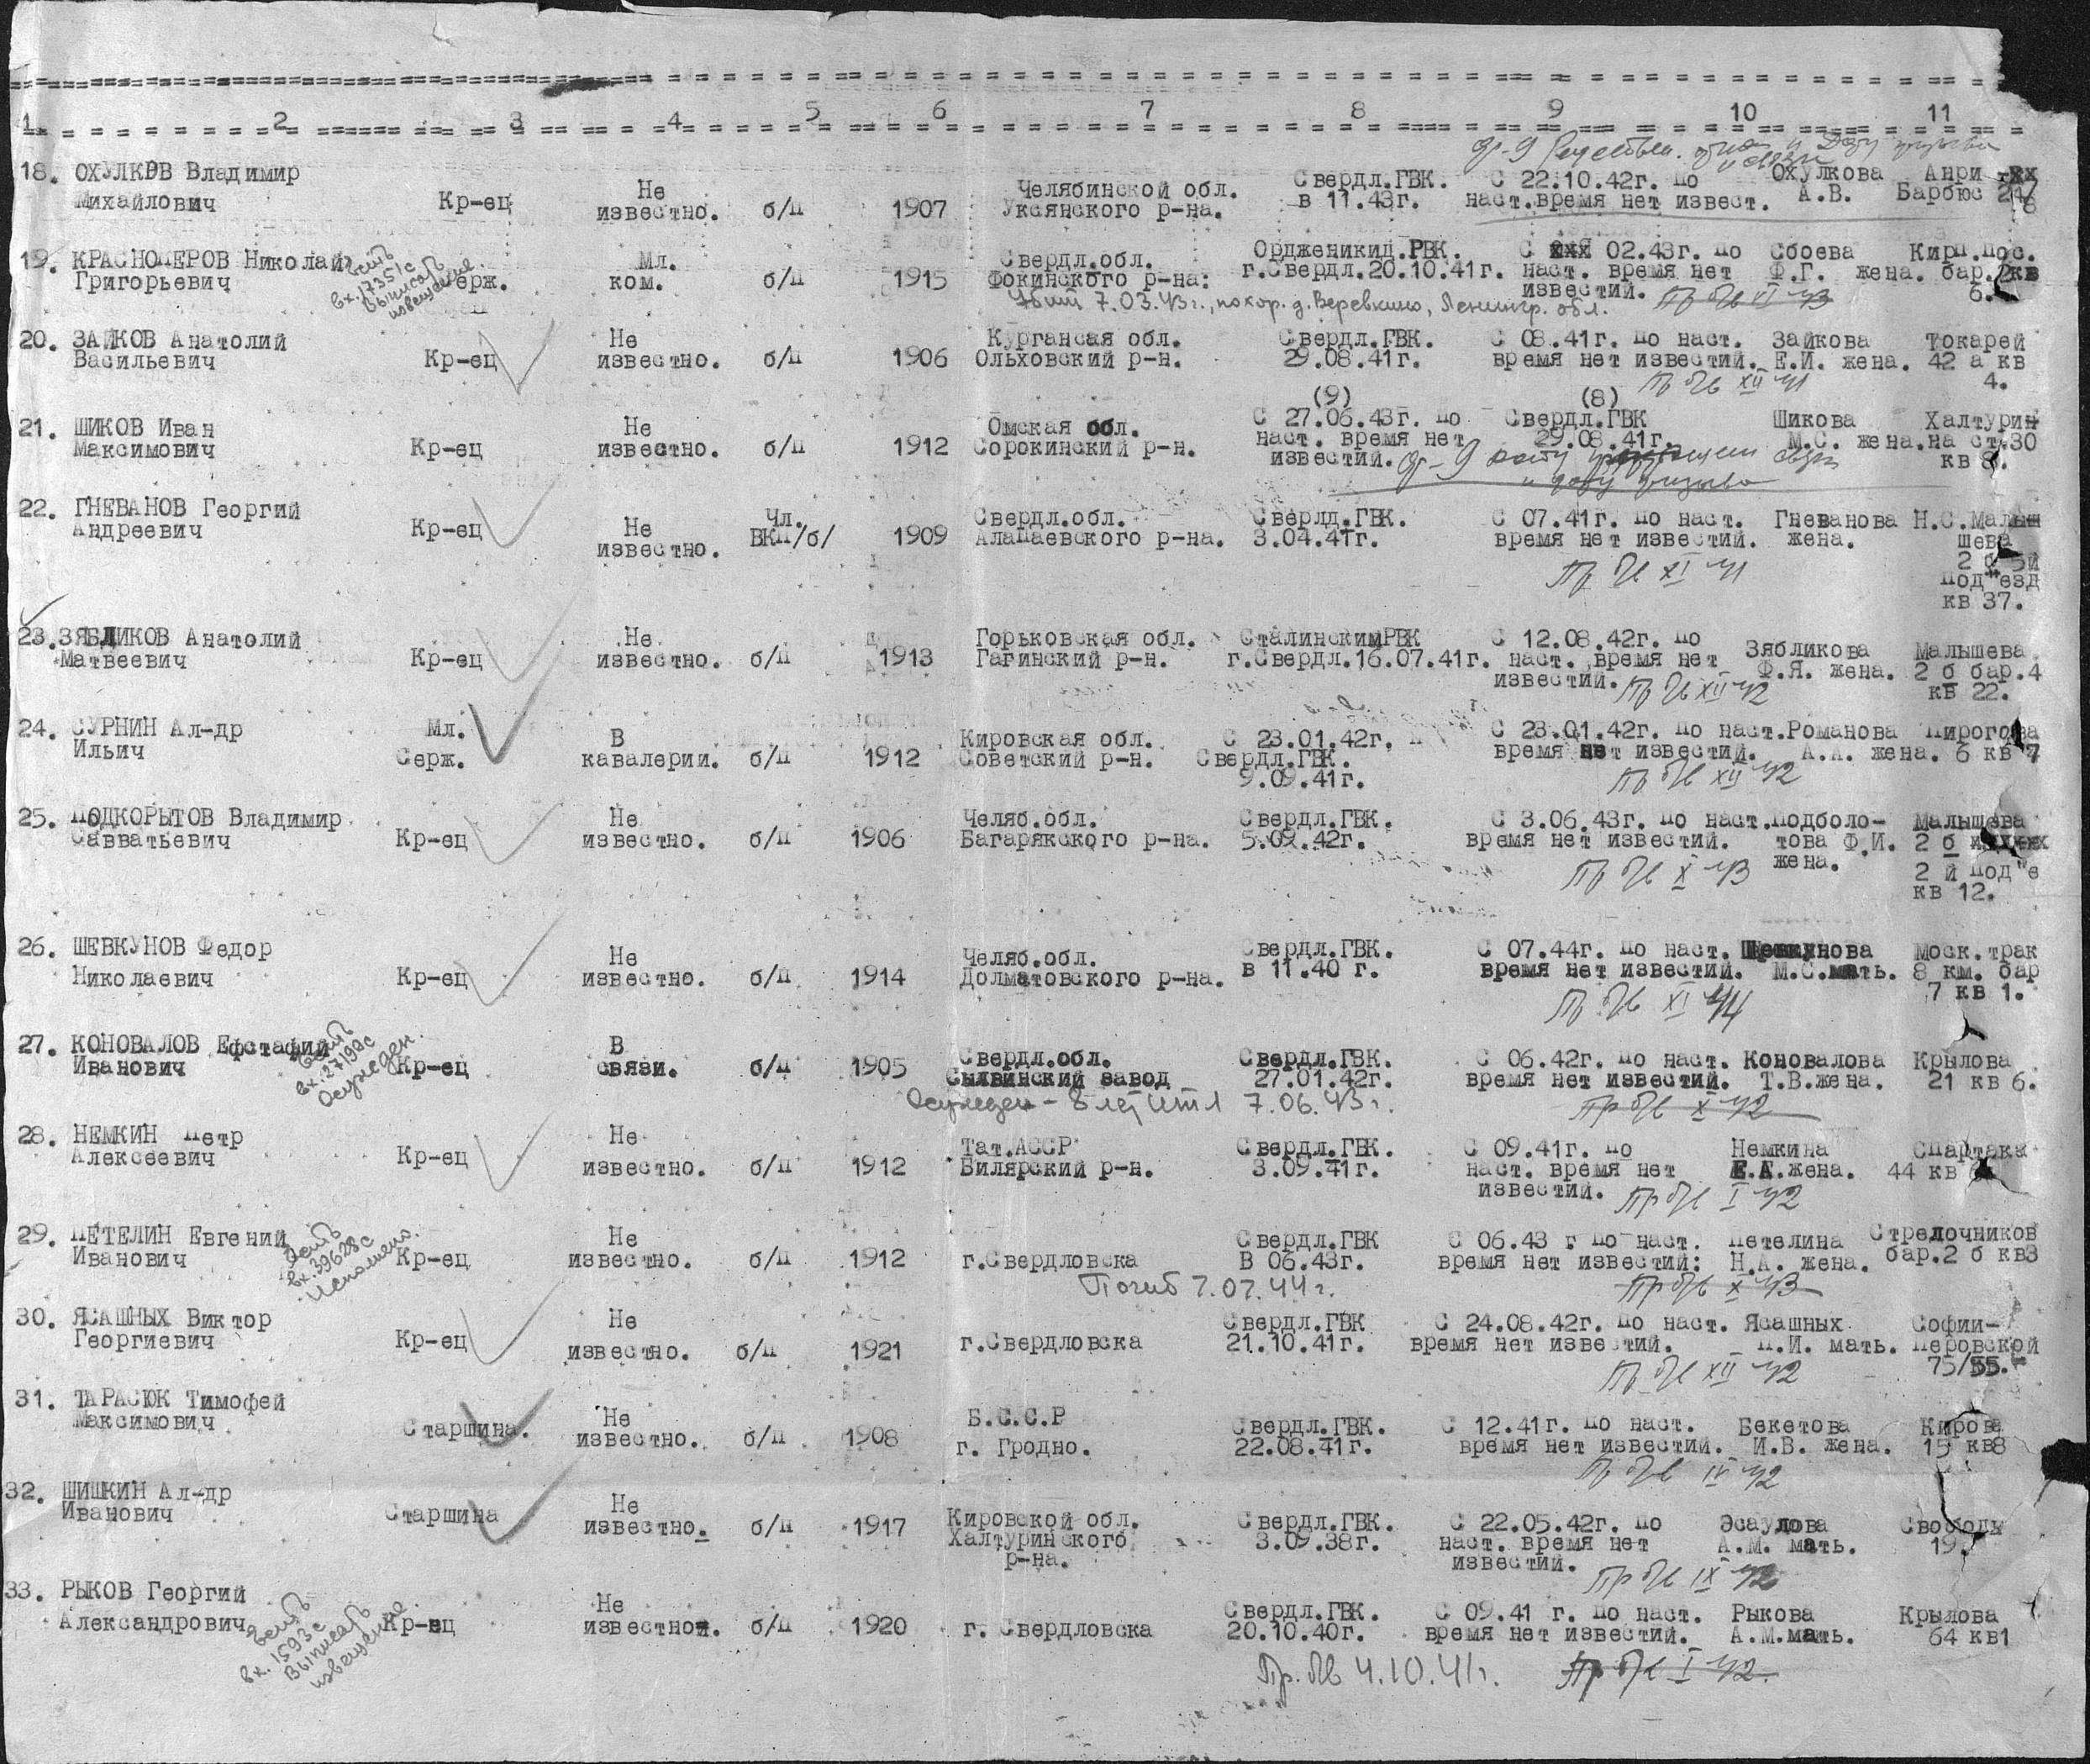 1. 2 3 4 5 6 7 8 9 10 11
18. ОХУЛКОВ Владимир Не Челябинской обл. Свердл.ГВК. С 22.10.42г. по Охулкова Анри
Михайлович Кр-ец известно. б/п 1907 Уксянского р-на. в 11.43г. наст.время нет извест. А.В. Барбюс
19. КРАСНОПЕРОВ Николай Мл. Свердл.обл. Орджений.РВК. С 02.43г. по Сбоева Кирп.пос.
Григорьевич ком. б/п 1915 Фокинского р-на: г.Свердл.20.10.41г. наст. время нет Ф.Г. жена. бар.
известий. Пр бв XI 43 6.
есть вх.17351с
выписать извещение
Убит 7.03.43г., похор. д. Веревкино, Ленингр. обл.
20. ЗАЙКОВ Анатолий Не Курганская обл. Свердл.ГВК. С 08.41г. по наст. Зайкова Токарей
Васильевич Кр-ец известно. б/п 1906 Ольховский р-н. 29.08.41г. время нет известий. Е.И. жена. 42 а кв
Пр бв XII 41 4.
(9) (8)
21. ШИКОВ Иван Не Омская обл. С 27.06.43г. по Свердл.ГВК Шикова Халтурин
Максимович Кр-ец известно. б/п 1912 Сорокинский р-н. наст. время нет 29.08.41г. М.С. жена.на ст.30
известий. кв 8.
22. ГНЕВАНОВ Георгий Чл. Свердл.обл. Сверлд.ГВК. С 07.41г. по наст. Гневанова Н.С.Малыш
Андреевич Кр-ец Не известно. ВКП/б/ 1909 Алапаевского р-на. 3.04.41г. время нет известий. жена. шева
Пр бв XI 41 2 б 5й
под"езд
кв 37.
23.ЗЯБЛИКОВ Анатолий Не Горьковская обл. СталинскимРВК С 12.08.42г. по Зябликова Малышева
Матвеевич Кр-ец известно. б/п 1913 Гагинский р-н. г.Свердл.16.07.41г. наст. время нет Ф.Я. жена. 2 б бар.4
известий. Пр бв XII 42 кв 22.
24. СУРНИН Ал-др Мл. В Кировская обл. С 23.01.42г. С 23.01.42г. по наст.Романова Пирогова
Ильич Серж. кавалерии. б/п 1912 Советский р-н. Свердл.ГВК. время нет известий. А.А. жена. 6 кв 7
9.09.41г. Пр бв XII 42
25. ПОДКОРЫТОВ Владимир Не Челяб.обл. Свердл.ГВК. С 3.06.43г. по наст.Подболо- Малышева
Савватьевич Кр-ец известно. б/п 1906 Багарякского р-на. 5.09.42г. время нет известий. това Ф.И. 2 б
Пр бв X 43 жена. 2 й под"е
кв 12.
26. ШЕВКУНОВ Федор Не Челяб.обл. Свердл.ГВК. С 07.44г. по наст. Шевкунова Моск.трак
Николаевич Кр-ец известно. б/п 1914 Долматовского р-на. в 11.40 г. время нет известий. М.С.мать. 8 км. бар
Пр бв XI 44 7 кв 1.
27. КОНОВАЛОВ Ефстафий В Свердл.обл. Свердл.ГВК. С 06.42г. по наст. Коновалова Крылова
Иванович Кр-ец связи. б/п 1905 Сылвинский завод 27.01.42г. время нет известий. Т.В.жена. 21 кв 6.
есть вх.27199с
Осужден.
Осужден - 8 лет ИТЛ 7.06.43г. Пр бв X 42
28. НЕМКИН Петр Не Тат.АССР Свердл.ГВК. С 09.41г. по Немкина Спартака
Алексеевич Кр-ец известно. б/п 1912 Билярский р-н. 3.09.41г. наст. время нет Е.Г.жена. 44 кв
известий. Пр бв I 42
29. ПЕТЕЛИН Евгений Не Свердл.ГВК С 06.43 г по наст. Петелина Стрелочников
Иванович Кр-ец известно. б/п 1912 г.Свердловска В 06.43г. время нет известий: Н.А. жена. бар.2 б кв3
есть вх.39628с
Исполнено.
Погиб 7.07.44г. Пр бв X 43
30. ЯСАШНЫХ Виктор Не Свердл.ГВК С 24.08.42г. по наст. Ясашных Софии-
Георгиевич Кр-ец известно. б/п 1921 г.Свердловска 21.10.41г. время нет известий. П.И. мать. Перовской
Пр бв XII 42 75/55.
31. ТАРАСЮК Тимофей Не Б.С.С.Р Свердл.ГВК. С 12.41г. по наст. Бекетова Кирова
Максимович Старшина. известно. б/п 1908 г. Гродно. 22.08.41г. время нет известий. И.В. жена. 15 кв8
Пр бв IV 42
32. ШИШКИН Ал-др Не Кировской обл. Свердл.ГВК. С 22.05.42г. по Эсаулова Свободы
Иванович Старшина известно. б/п 1917 Халтуринского 3.09.38г. наст. время нет А.М. мать. 19.
р-на. известий. Пр бв IX 42
33. РЫКОВ Георгий Не Свердл.ГВК. С 09.41 г. по наст. Рыкова Крылова
Александрович Кр-ец известно. б/п 1920 г. Свердловска 20.10.40г. время нет известий. А.М.мать. 64 кв1
есть вх.1593с
Выписать извещение
Пр. бв 4.10.41г. Пр бв I 42